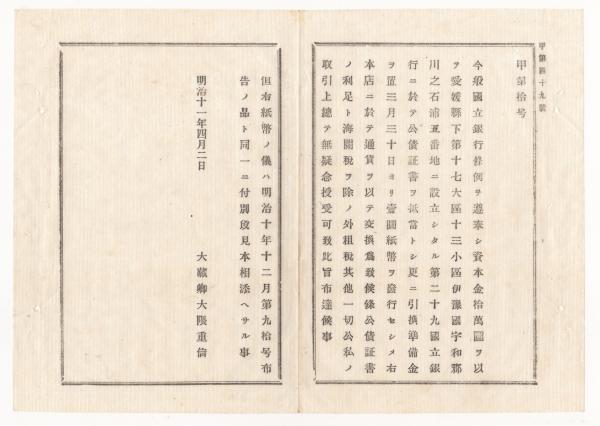 甲第四十九號
甲第拾号
今般國立銀行條例ヲ遵奉シ資本金拾萬圓ヲ以
テ愛媛縣下第十七大區十三小區伊豫國宇和郡
川之石浦五番地ニ設立シタル第二十九國立銀
行ニ於テ公債証書ヲ抵當トシ更ニ引換準備金
ヲ置三月三十日ヨリ壹圓紙幣ヲ發行セシメ右
本店ニ於テ通貨ヲ以テ交換為致候條公債証書
ノ利足ト海關稅ヲ除ノ外租稅其他一切公私ノ
取引上總テ無疑念授受可致此旨布達候事
但右紙幣ノ儀ハ明治十年十二月第九拾号布
告ノ品ト同一ニ付別段見本相添ヘサル事
明治十一年四月二日
大藏卿大隈重信